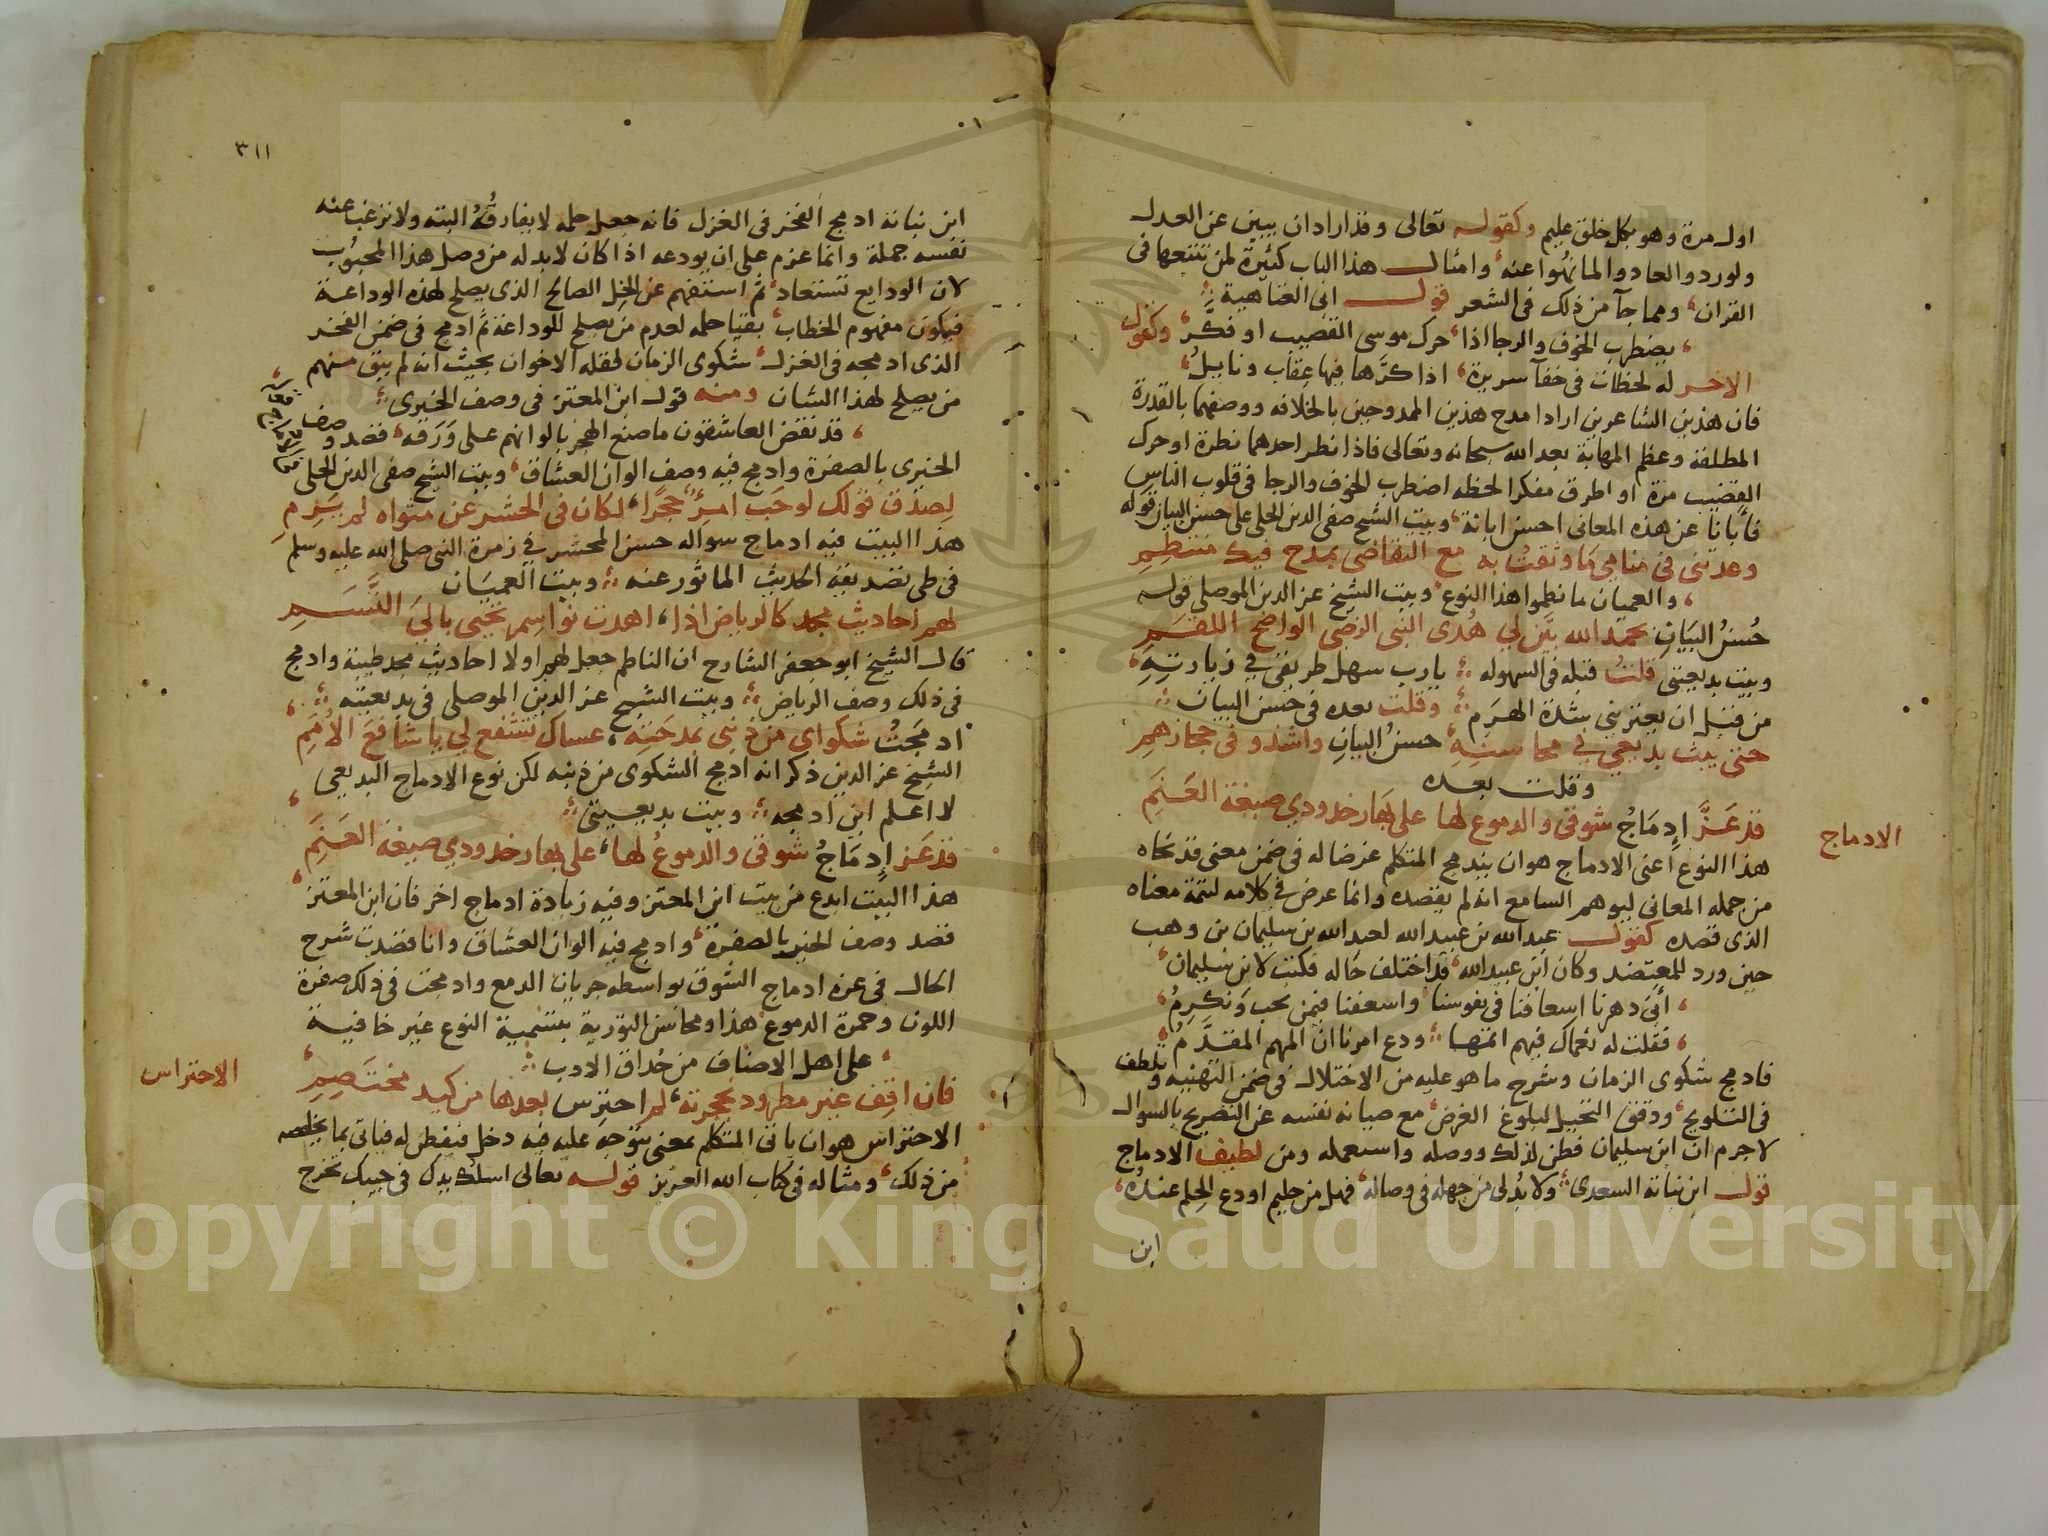 اول مرة وهو بكل خلق عليم وكقوله تعالى وقد اراد ان يبين عن العدل
ولو ردوا لعادوا لما نهوا عنه وامثال هذا الباب كثيرة لمن تتبعها فى
القران ومما جآ من ذلك فى الشعر قول ابى العتاهية
يضطرب الخوف والرجا اذا حرك موسى القضيب او فكَّر وكقول
الاخر له لحظات فى خفآ سريرة اذا كرَّها فيها عقاب ونايلُ
فان هذين الشاعرين ارادا مدح هذين الممدوحين بالخلافه ووصفهما بالقدرة
المطلقة وعظم المهابة بعد الله سبحانه وتعالى فاذا نظر احدهما نظرة او حرك
القضيب مرة او اطرق مفكرا لحظه اضطرب الخوف والرجا فى قلوب الناس
فأبانا عن هذه المعانى احسن ابانة وبيت الشيخ صفى الدين الحلى على حسن البيان قوله
وعدتنى فى منامى ما وثقت به مع التقاضى بمدح فيك منتظم
والعميان ما نظموا هذا النوع وبيت الشيخ عز الدين الموصلى قوله
حُسنُ البَيَانِ بحمد الله بيَّن لي هُدى النبى الرضى الواضح اللقم
وبيت بديعيتى قلتُ قبله فى السهوله يا رب سهل طريقى في زيارته
من قبل ان يعتريني شدة الهرم وقلت بعده فى حسن البيان
حتى يبث بديعي في محاسنه حسنُ البيانِ واشدو فى حجازهم
وقلت بعده
قد عَزَّ إِدمَاجُ شوقى والدموع لها على بهار خدودي صبغة العَنَمِ
هذا النوع اعنى الادماج هو ان يدمج المتكلم غرضا له فى ضمن معنى قد نحاه
من جمله المعانى ليوهم السامع انه لم يقصده وانما عرض في كلامه لتتمة معناه
الذى قصده كقول عبد الله بن عبيد الله لعبد الله بن سليمان بن وهب
حين ورد للمعتضد وكان ابن عبيد الله قد اختلف حاله فكتب لابن سليمان
أبَى دهرنا اسعافنا فى نفوسنا واسعفنا فيمن نحب ونكرمُ
فقلت له نعماك فيهم اتمها ودع امرنا ان المهم المقدَّم
فادمج شكوى الزمان وشرح ما هو عليه من الاختلال فى ضمن التهنيه وتلطف
فى التلويح ودقق التحيل لبلوغ الغرض مع صيانه نفسه عن التصريح بالسوال
لا جرم ان ابن سليمان فطن لذلك ووصله واستعمله ومن لطيف الادماج
قول ابن نباتة السعدى ولا بُد لى من جهله فى وصاله فهل من حليم اودع الحلم عنده
ابن
الادماج
٣١١
ابن نباته ادمج الفخر فى الغزل فانه جعل حلمه لا يفارقُهُ البته ولا نزغب عنه
نفسه جملة وانما عزم على ان يودعه اذا كان لا بد له من وصل هذا المحبوب
لان الودايع تستعاد ثم استفهم عن الخل الصالح الذى يصلح لهذه الوداعة
فيكون مفهوم الخطاب بقيا حلمه لعدم من يصلح للوداعة ثم ادمج فى ضمن الفخر
الذى ادمجه فى الغزل شكوى الزمان لقله الاخوان بحيث انه لم يبق منهم
من يصلح لهذا الشان ومنه قول ابن المعتز فى وصف الخيرى
قد نفض العاشقون ما صنع الهجر بالوانهم على وَرَقه فقصد وصف
الخيرى بالصفرة وادمج فيه وصف الوان العشاق وبيت الشيخ صفى الدين الحلى
لِصدق قولك لو حَب امرءٌ حجرًا لكان فى الحشر عن مثواه لم يَرِمِ
هذا البيت فيه ادماج سواله حسن المحشر في زمرة النبى صلى الله عليه وسلم
فى طى تصديقه الحديث الماثور عنه وبيت العميان
لهم احاديث مجد كالرياض اذا اهدت نواسم تحيى بالىَ النَّسَمِ
قال الشيخ ابو جعفر الشارح ان الناظم جعل لهم اولا احاديث مجد طيبة وادمج
فى ذلك وصف الرياض وبيت الشيخ عز الدين الموصلى فى بديعيته
ادمجتُ شكواي من ذنبى بمدحته عساك تشفع لي يا شافعَ الأُمَمِ
الشيخ عز الدين ذكر انه ادمج الشكوى من ذنبه لكن نوع الادماج البديعى
لا اعلم اين ادمجه وبيت بديعيتى
قد عَز إِدمَاجُ شوقى والدموعُ لها على بهار خدودي صبغة العَنَمِ
هذا البيت ابدع من بيت ابن المعتز وفيه زيادة ادماج اخر فان ابن المعتز
قصد وصف الخيرى بالصفرة وادمج فيه الوان العشاق وانا قصدت شرح
الحال فى عزه ادماج الشوق بواسطه جريان الدمع وادمجت فى ذلك صفرة
اللون وحمرة الدموع هذا ومحاسن التورية بتسمية النوع غير خافية
على اهل الانصاف من حُذاق الادب
فان اقِف غير مطرود بحجرته لم احترس بعدها من كيد مختصِمِ
الاحتراس هو ان ياتى المتكلم بمعنى يتوجه عليه فيه دخل فيفطن له فياتى بما يخلصه
من ذلك ومثاله فى كتاب الله العزيز قوله تعالى اسلك يدك فى جيبك تخرج
الاحتراس
Copyright © King Saud University